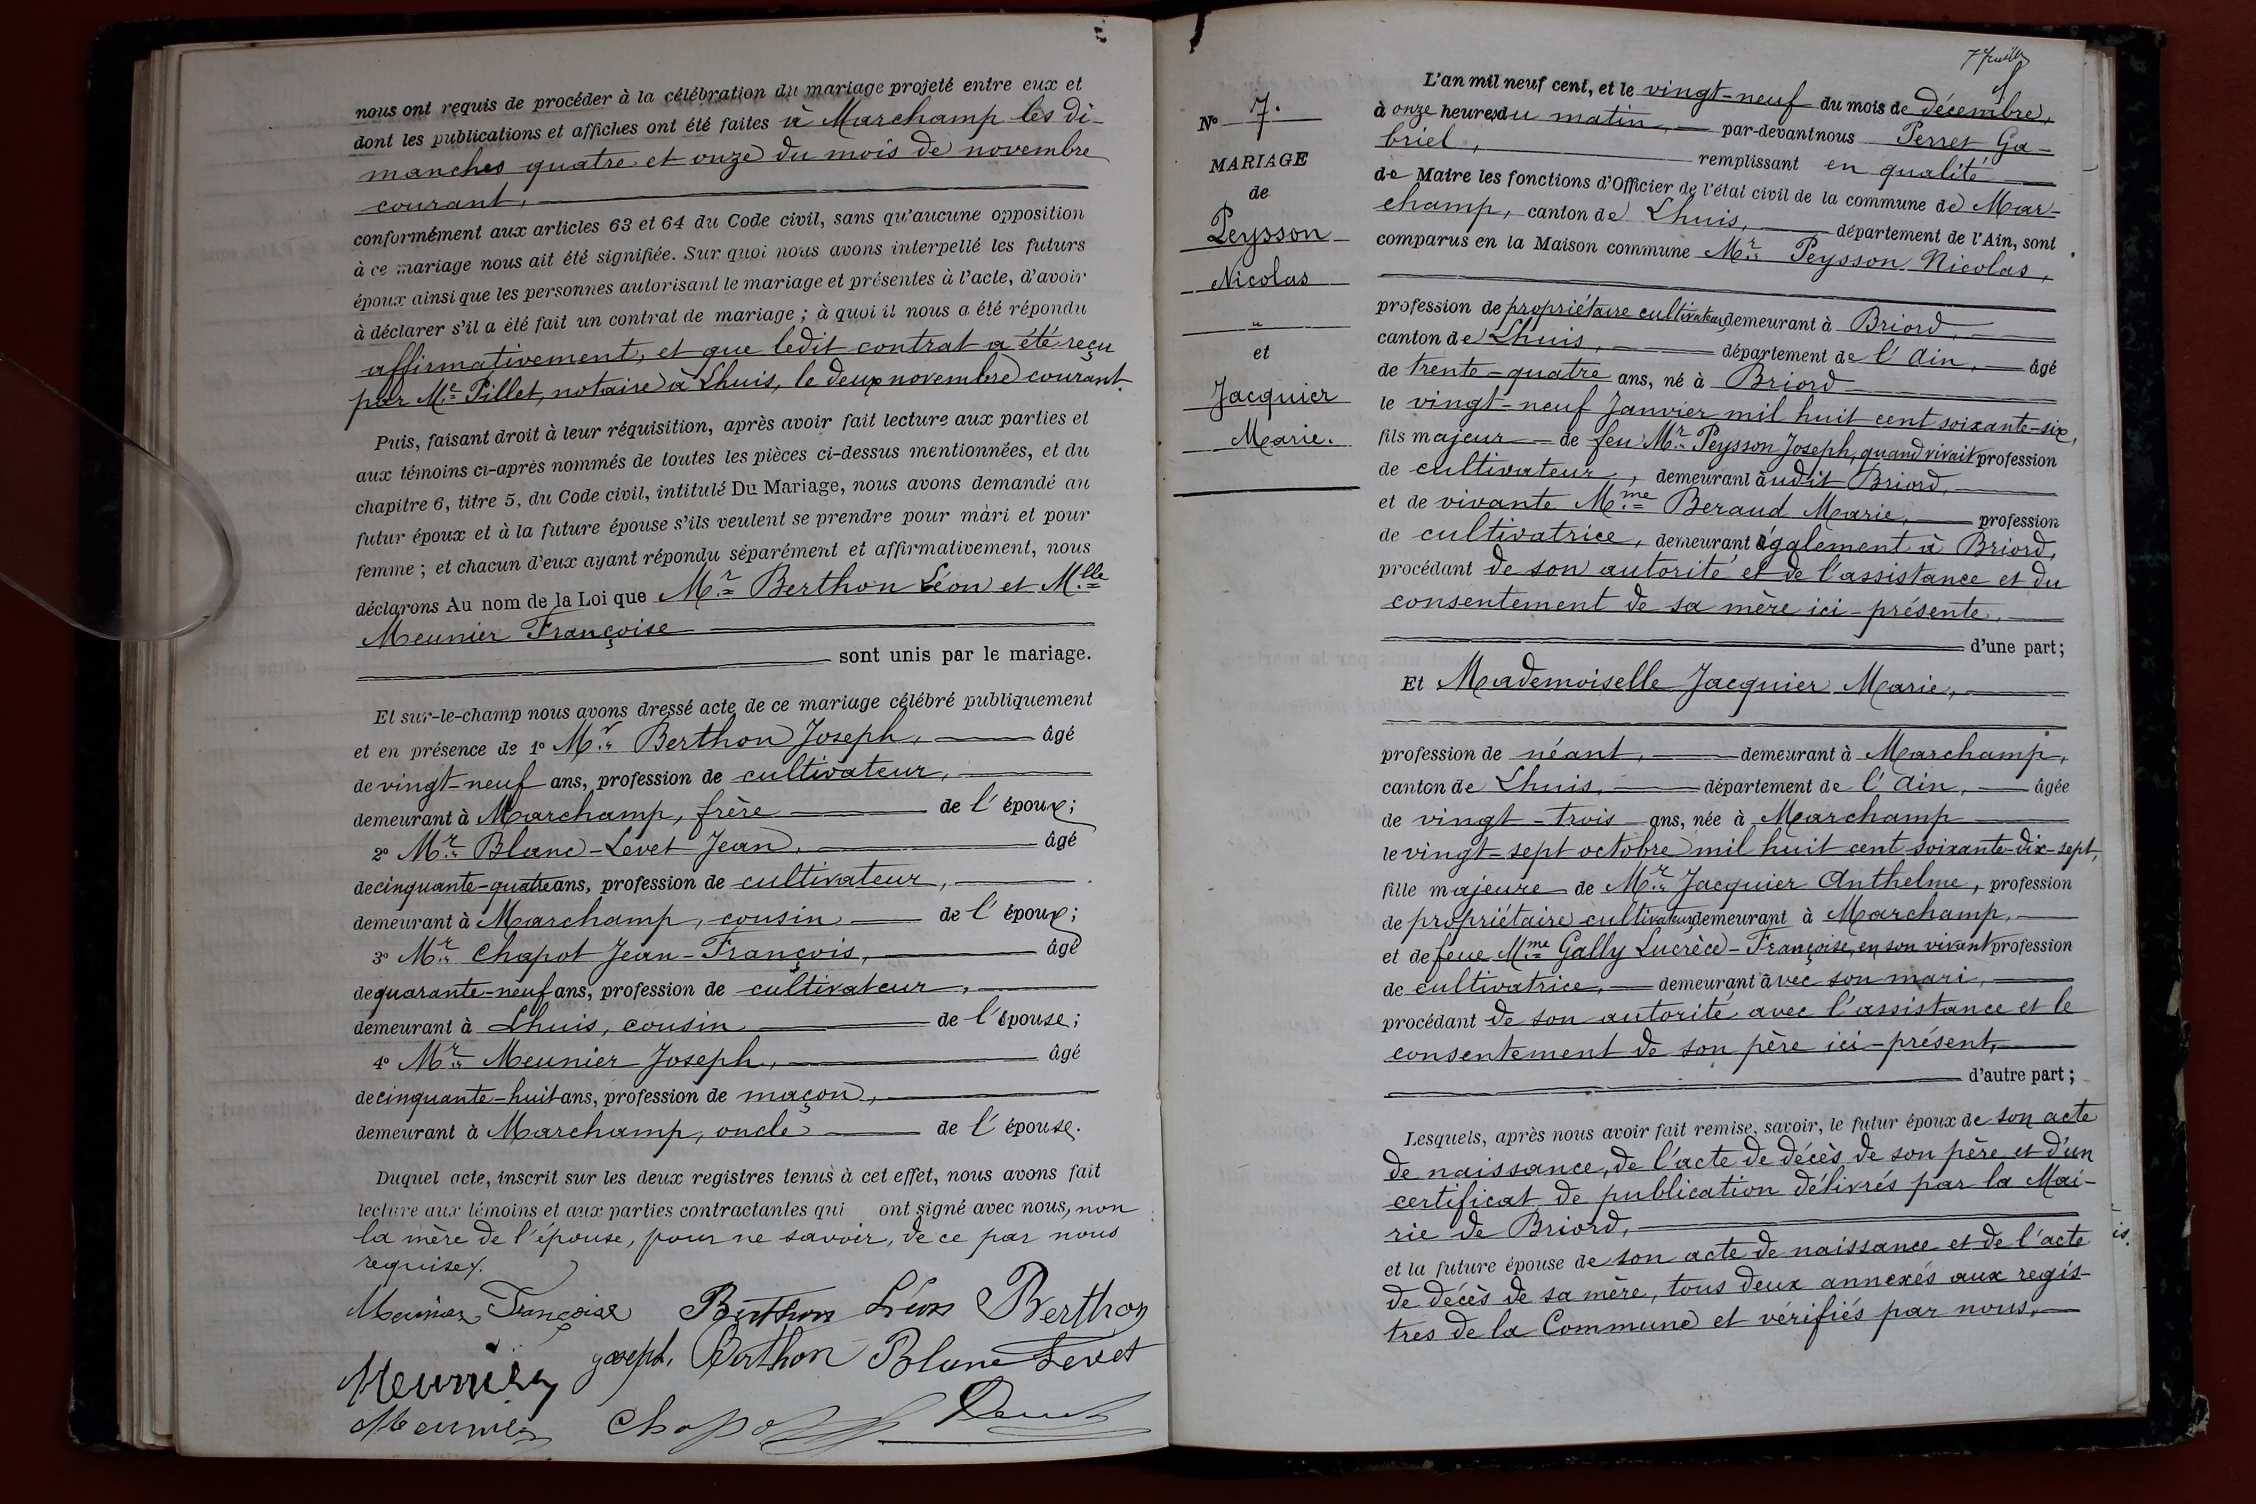 nous ont requis de procéder à la célébration du mariage projeté entre eux et
dont les publications et affiches ont été faites à Marchamp les di-
manches quatre et onze du mois de novembre
courant,
conformément aux articles 63 et 64 du Code civil, sans qu'aucune opposition
à ce mariage nous ait été signifiée. Sur quoi nous avons interpellé les futurs
époux ainsi que les personnes autorisant le mariage et présentes à l'acte, d'avoir
à déclarer s'il a été fait un contrat de mariage ; à quoi il nous a été répondu
affirmativement, et que ledit contrat a été reçu
par Me Pillet, notaire à Lhuis, le deux novembre courant.
Puis, faisant droit à leur réquisition, après avoir fait lecture aux parties et
aux témoins ci-après nommés de toutes les pièces ci-dessus mentionnées, et du
chapitre 6, titre 5, du Code civil, intitulé Du Mariage, nous avons demandé au
futur époux et à la future épouse s'ils veulent se prendre pour mari et pour
femme ; et chacun d'eux ayant répondu séparément et affirmativement, nous
déclarons Au nom de la Loi que Mr Berthon Léon et Mlle
Meunier Françoise
sont unis par le mariage.
Et sur-le-champ nous avons dressé acte de ce mariage célébré publiquement
et en présence de 1° Mr Berthon Joseph, âgé
de vingt-neuf ans, profession de cultivateur,
demeurant à Marchamp, frère de l'époux;
2° Mr Blanc-Levet Jean, âgé
de cinquante-quatre ans, profession de cultivateur,
demeurant à Marchamp, cousin de l'époux;
3° Mr Chapot Jean-François, âgé
de quarante-neuf ans, profession de cultivateur,
demeurant à Lhuis, cousin de l'épouse;
4° Mr Meunier Joseph, âgé
de cinquante-huit ans, profession de maçon,
demeurant à Marchamp, oncle de l'épouse.
Duquel acte, inscrit sur les deux registres tenus à cet effet, nous avons fait
lecture aux témoins et aux parties contractantes qui ont signé avec nous, non
la mère de l'épouse, pour ne savoir, de ce par nous
requise.
Meunier Françoise Berthon Léon Berthon
Joseph Berthon Blanc Levet
Meunier
Meunier Chapot
N° 7.
MARIAGE
de
Peysson
Nicolas
"
et
Jacquier
Marie.
L'an mil neuf cent, et le vingt-neuf du mois de décembre,
à onze heures du matin, par-devant nous Perret Ga-
briel, remplissant en qualité
de Maire les fonctions d'Officier de l'état civil de la commune de Mar-
champ, canton de Lhuis, département de l'Ain, sont
comparus en la Maison commune Mr Peysson Nicolas,
profession de propriétaire cultivateur demeurant à Briord,
canton de Lhuis, département de l'Ain, âgé
de trente-quatre ans, né à Briord
le vingt-neuf Janvier mil huit cent soixante-six,
fils majeur de feu Mr Peysson Joseph, quand vivait profession
de cultivateur, demeurant audit Briord,
et de vivante Mme Beraud Marie, profession
de cultivatrice, demeurant également à Briord,
procédant de son autorité et de l'assistance et du
consentement de sa mère ici-présente,
d'une part;
Et Mademoiselle Jacquier Marie,
profession de néant, demeurant à Marchamp,
canton de Lhuis, département de l'Ain, âgée
de vingt-trois ans, née à Marchamp
le vingt-sept octobre mil huit cent soixante-dix-sept,
fille majeure de Mr Jacquier Anthelme, profession
de propriétaire cultivateur demeurant à Marchamp,
et de feue Mme Gally Lucrèce-Françoise, en son vivant profession
de cultivatrice, demeurant avec son mari,
procédant de son autorité avec l'assistance et le
consentement de son père ici-présent,
d'autre part;
Lesquels, après nous avoir fait remise, savoir, le futur époux de son acte
de naissance, de l'acte de décès de son père et d'un
certificat de publication délivrés par la Mai-
rie de Briord,
et la future épouse de son acte de naissance et de l'acte
de décès de sa mère, tous deux annexés aux regis-
tres de la Commune et vérifiés par nous,
is.